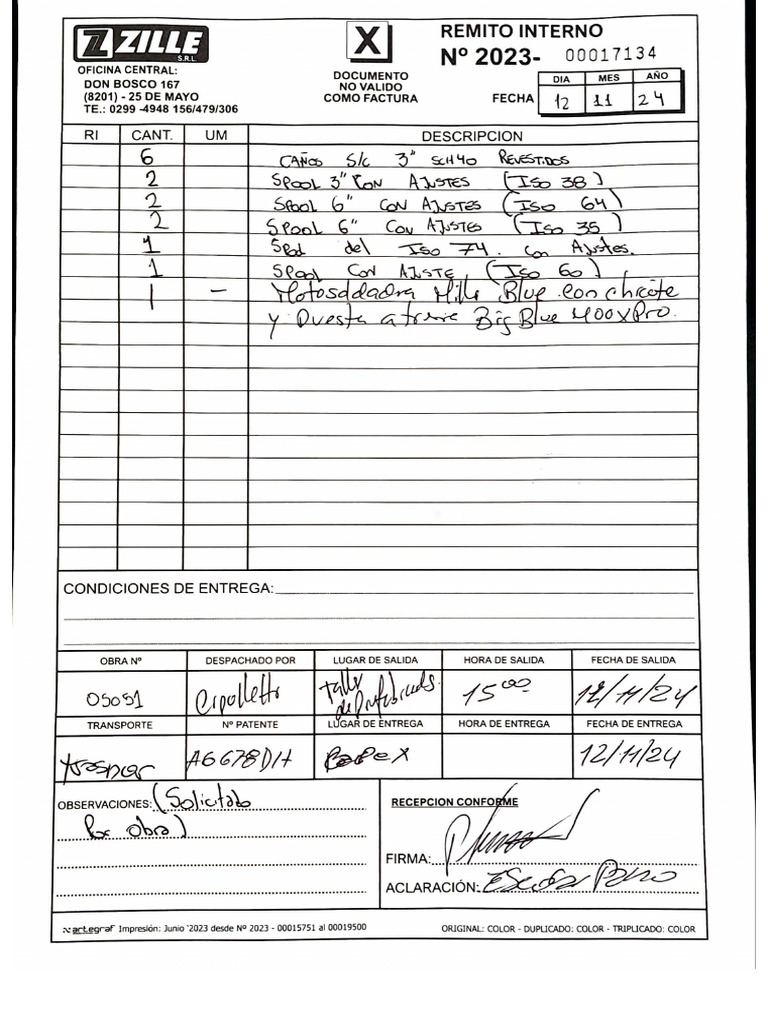 ZILLE S.R.L.
OFICINA CENTRAL:
DON BOSCO 167
(8201) - 25 DE MAYO
TE.: 0299 -4948 156/479/306
X
DOCUMENTO
NO VALIDO
COMO FACTURA
REMITO INTERNO
Nº 2023- 00017134
FECHA DIA MES AÑO
12 11 24
RI CANT. UM DESCRIPCION
6 CAÑOS S/C 3" SCH40 REVESTIDOS
2 SPOOL 3" CON AJUSTES (ISO 38)
2 SPOOL 6" CON AJUSTES (ISO 64)
2 SPOOL 6" CON AJUSTES (ISO 35)
1 Spool del ISO 74 con Ajustes.
1 SPOOL CON AJUSTE (ISO 60)
1 - Motosoldadra Mille Blue con chicote
y Puesta a tierra Big Blue 400XPro.
CONDICIONES DE ENTREGA:
OBRA Nº DESPACHADO POR LUGAR DE SALIDA HORA DE SALIDA FECHA DE SALIDA
05051 Cipolletti Taller de Prefabricados. 15 00 12/11/24
TRANSPORTE Nº PATENTE LUGAR DE ENTREGA HORA DE ENTREGA FECHA DE ENTREGA
AG678DH 12/11/24
OBSERVACIONES: (Solicitado
Por obra)
RECEPCION CONFORME
FIRMA:
ACLARACIÓN:
artegraf Impresión: Junio '2023 desde Nº 2023 - 00015751 al 00019500
ORIGINAL: COLOR - DUPLICADO: COLOR - TRIPLICADO: COLOR